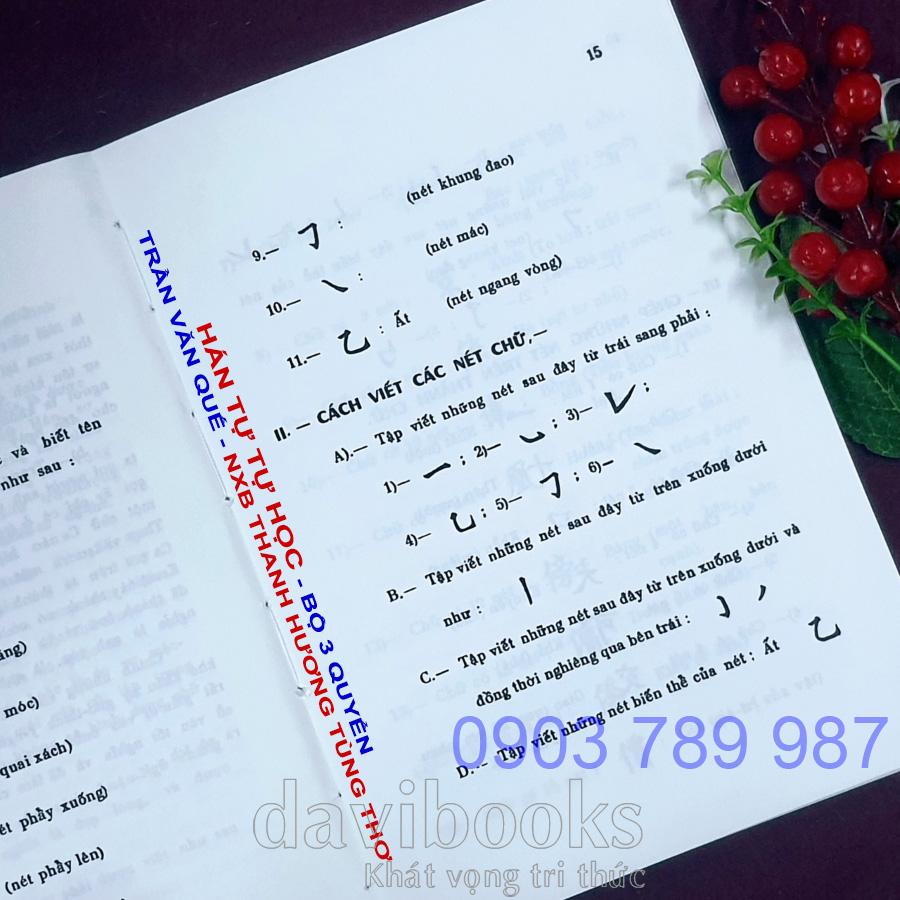 và biết tên
như sau :
móc)
quai xách)
phẩy xuống)
(nét phẩy lên)
15
9.— ㇆ : (nét khung đao)
10.— ㇏ : (nét mác)
11.— 乙 : Ất (nét ngang vòng)
II. — CÁCH VIẾT CÁC NÉT CHỮ.—
A).— Tập viết những nét sau đây từ trái sang phải :
1)— ㇐ ; 2)— ㇃ ; 3)— ㇙ ;
4)— ㇟ ; 5)— ㇆ ; 6)— ㇏
B.— Tập viết những nét sau đây từ trên xuống dưới
như : 丨
C.— Tập viết những nét sau đây từ trên xuống dưới và
đồng thời nghiêng qua bên trái : 亅 ㇒
D.— Tập viết những nét biến thể của nét : Ất 乙
HÁN TỰ TỰ HỌC - BỘ 3 QUYỂN
TRẦN VĂN QUẾ - NXB THANH HƯƠNG TÙNG THƠ
0903 789 987
davibooks
Khát vọng tri thức